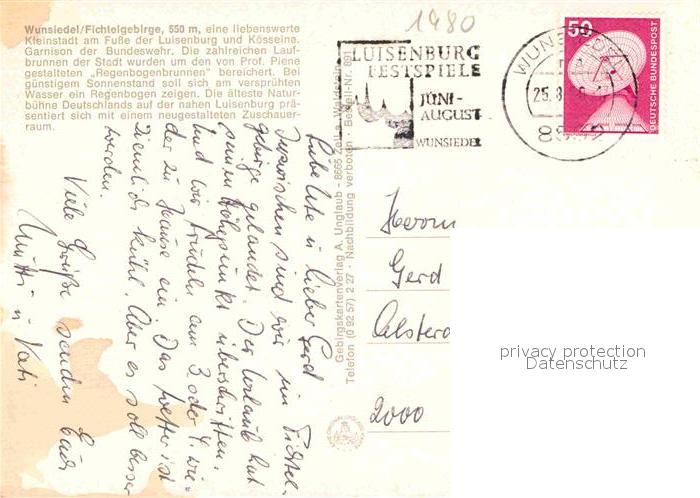 1980
Wunsiedel/Fichtelgebirge, 550 m, eine liebenswerte
Kleinstadt am Fuße der Luisenburg und Kösseine.
Garnison der Bundeswehr. Die zahlreichen Lauf-
brunnen der Stadt wurden um den von Prof. Piene
gestalteten „Regenbogenbrunnen" bereichert. Bei
günstigem Sonnenstand soll sich am versprühten
Wasser ein Regenbogen zeigen. Die älteste Natur-
bühne Deutschlands auf der nahen Luisenburg prä-
sentiert sich mit einem neugestalteten Zuschauer-
raum.
LUISENBURG
FESTSPIELE
JUNI-
AUGUST
WUNSIEDEL
WUNSIEDEL
25.8.
50
DEUTSCHE BUNDESPOST
Liebe Ute u. lieber Gerd
Inzwischen sind wir im Fichtel-
gebirge gelandet. Der Urlaub hat
seinen Höhepunkt überschritten.
Und wir trudeln am 3. oder 4. wie-
der zu Hause ein. Das Wetter ist
ziemlich kühl. Aber es soll besser
werden.
Viele Grüße senden Euch
Mutti u. Vati
Gebirgskartenverlag A. Unglaub - 8665 Zell a. Waldstein
Telefon (0 92 57) 2 27 - Nachbildung verboten - Bestell-Nr. 891
Herrn
Gerd
2000
privacy protection
Datenschutz